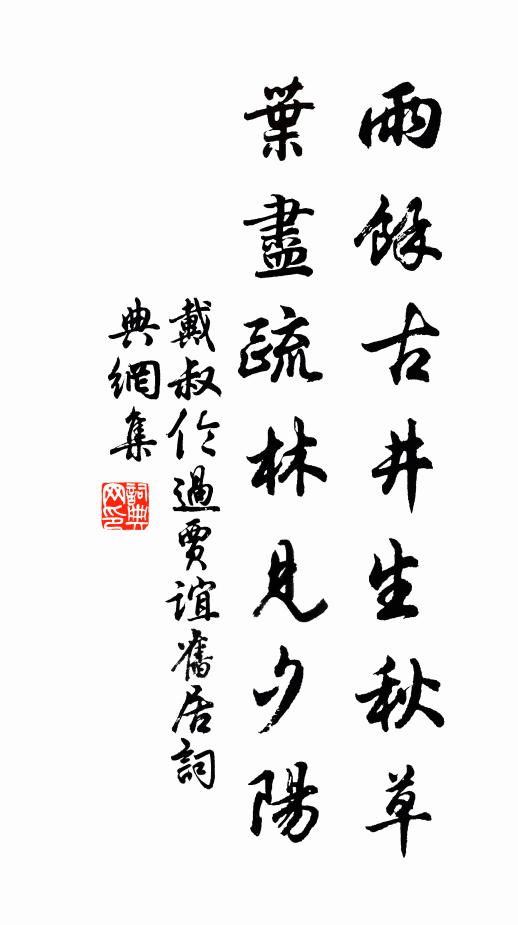 雨餘古井生秋草
葉盡疏林見夕陽
戴叔伦過賈誼舊居詞
典網集
詞典
网印